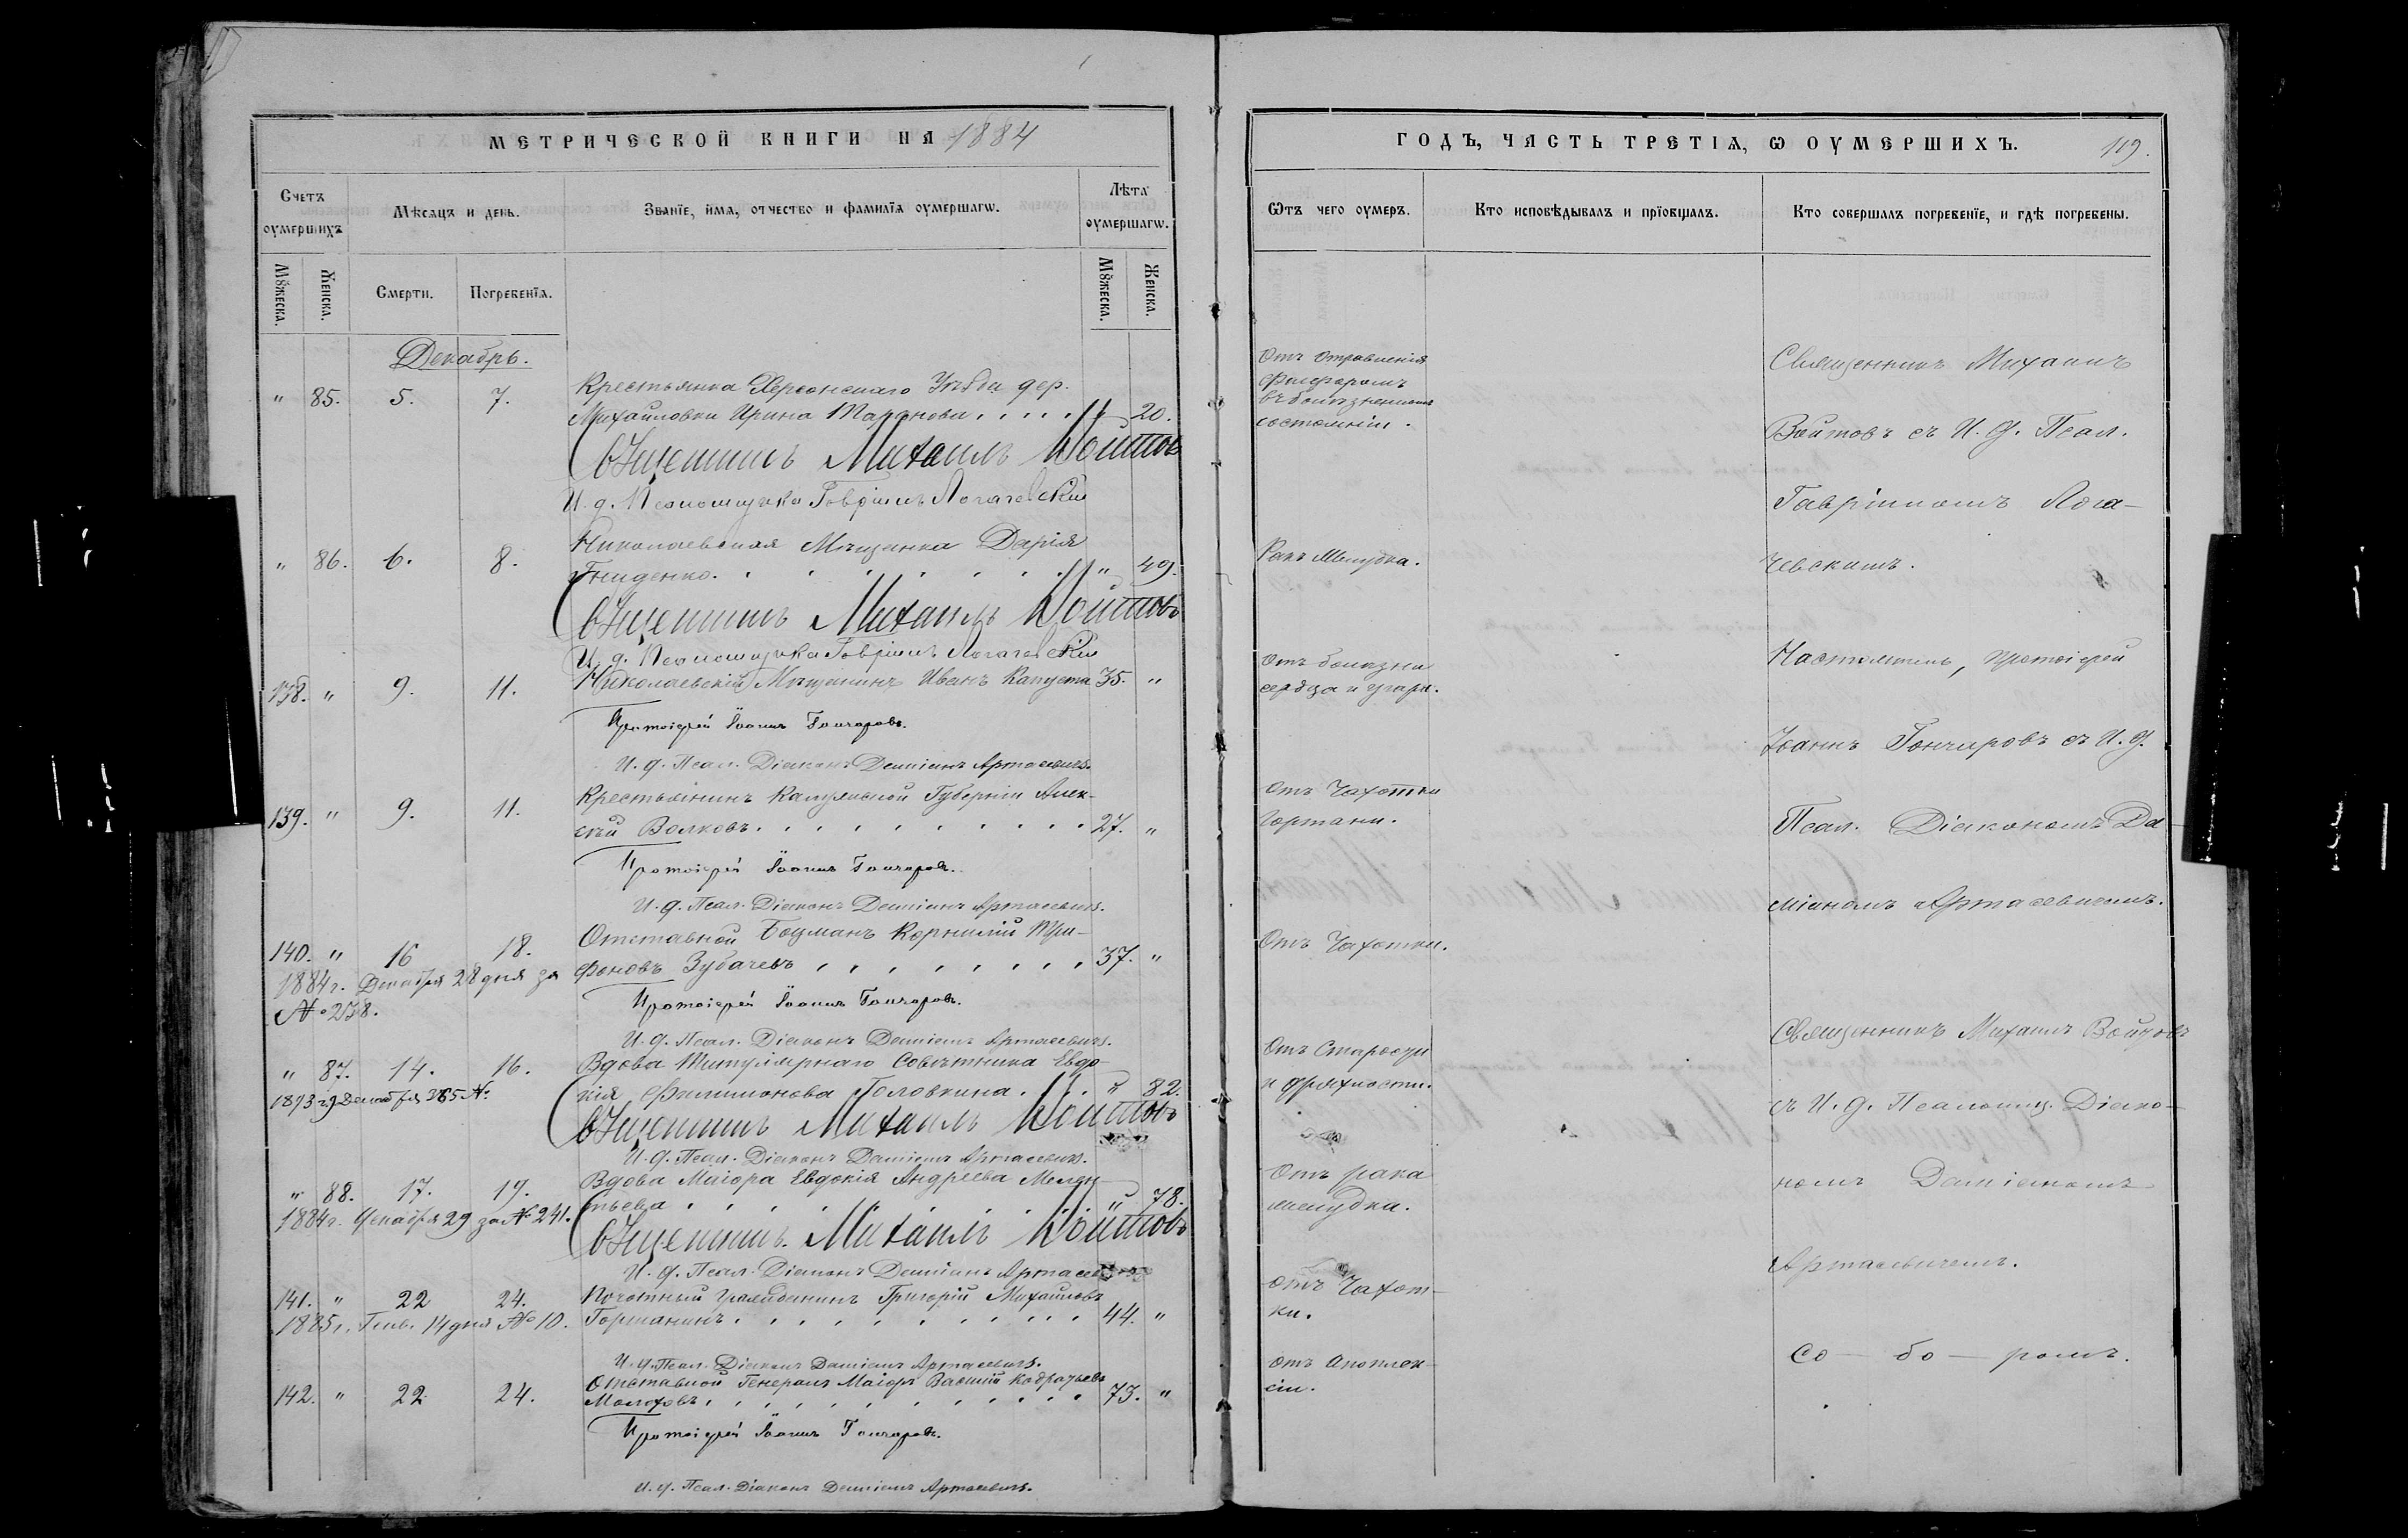 МЕТРИЧЕСКОЙ КНИГИ НА 1884
Счетъ оумершихъ
Мѣсяцъ и день.
Званїе, имя, отчество и фамилїя оумершагѡ.
Лѣта оумершагѡ.
Мꙋжеска.
Женска.
Смерти.
Погребенїя.
Мꙋжеска.
Женска.
Декабрь.
" 85. 5. 7. Крестьянка Херсонскаго Уѣзда дер.
Михайловки Ирина " 20.
Священникъ Михаилъ Войтовъ
И. д. Псаломщика Гавріилъ Логачевскій
" 86. 6. 8. Николаевская Мѣщанка Дарія
Гниденко. " 49.
Священникъ Михаилъ Войтовъ
И. д. Псаломщика Гавріилъ Логачевскій
138. " 9. 11. Николаевскій Мѣщанинъ Иванъ Капуста 35. "
Протоіерей Іоаннъ Гончаровъ.
И. д. Псал. Діаконъ Даміанъ Артасевичъ.
139. " 9. 11. Крестьянинъ Калужской Губерніи Алек-
сѣй Волковъ. 27. "
Протоіерей Іоаннъ Гончаровъ.
И. д. Псал. Діаконъ Даміанъ Артасевичъ.
140. " 16 18. Отставной Боцманъ Корнилій Три-
фоновъ Зубачевъ 37. "
1884 г. Декабря 28 дня за
№ 238.
Протоіерей Іоаннъ Гончаровъ.
И. д. Псал. Діаконъ Даміанъ Артасевичъ.
" 87. 14. 16. Вдова Титулярнаго Совѣтника Евдо-
кія Филимонова Головкина. " 82.
Священникъ Михаилъ Войтовъ
И. д. Псал. Діаконъ Даміанъ Артасевичъ.
" 88. 17. 19. Вдова Маіора Евдокія Андреева
" 78.
1884 г. Декабря 29 за № 241.
Священникъ Михаилъ Войтовъ
И. д. Псал. Діаконъ Даміанъ Артасевичъ
141. " 22 24. Почотный гражданинъ Григорій Михайловъ
44. "
1885 г. Генв. 14 дня № 10.
И. д. Псал. Діаконъ Даміанъ Артасевичъ.
142. " 22 24. Отставной Генералъ Маіоръ Василій
73. "
Протоіерей Іоаннъ Гончаровъ.
И. д. Псал. Діаконъ Даміанъ Артасевичъ.
ГОДЪ, ЧАСТЬ ТРЕТІЯ, Ѡ ОУМЕРШИХЪ. 119.
Ѿтъ чего оумеръ.
Кто исповѣдывалъ и прїобщалъ.
Кто совершалъ погребенїе, и гдѣ погребены.
Отъ отравленія
фосфоромъ
въ болѣзненномъ
состояніи.
Ракъ желудка.
Отъ болѣзни
сердца и угара.
Отъ Чахотки
Гортани.
Отъ Чахотки.
Отъ Старости
и дряхлости.
Отъ рака
желудка.
Отъ Чахот-
ки.
Отъ Апоплек-
сіи.
Священникъ Михаилъ
Войтовъ съ И. д. Псал.
Гавріиломъ Лога-
чевскимъ.
Настоятель, протоіерей
Іоаннъ Гончаровъ съ И. д.
Псал. Діакономъ Да-
міаномъ Артасевичемъ.
Священникъ Михаилъ Войтовъ
съ И. д. Псаломщ. Діако-
номъ Даміаномъ
Артасевичемъ.
Со - бо - ромъ.